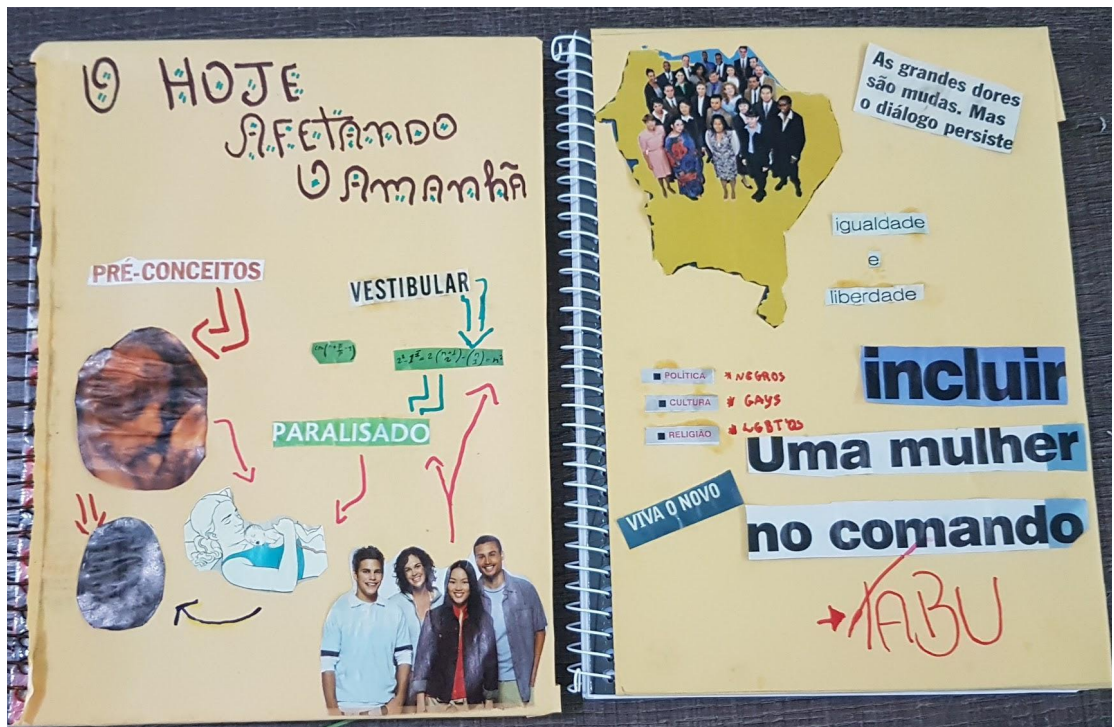 O HOJE
AFETANDO
O AMANHÃ
PRÉ-CONCEITOS
VESTIBULAR
PARALISADO
As grandes dores
são mudas. Mas
o diálogo persiste
igualdade
e
liberdade
POLÍTICA * NEGROS
CULTURA * GAYS
RELIGIÃO * LGBT'
incluir
Uma mulher
VIVA O NOVO
no comando
TABU